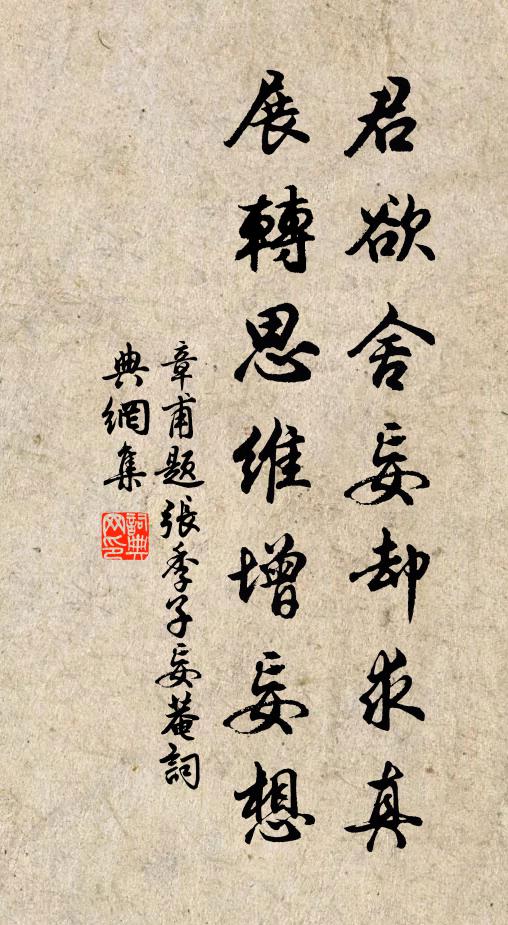 君欲舍妄却求真
展轉思維增妄想
章甫题張季子妄菴詞
典網集
詞典网印